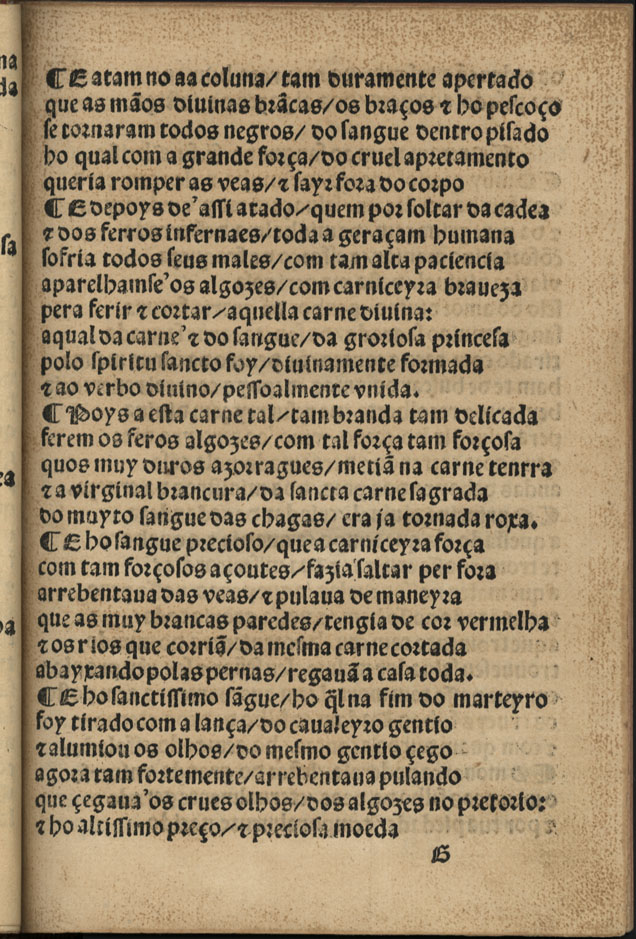 ¶ E atam no aa coluna/ tam duramente apertado
que as mãos divinas brãcas/os braços ⁊ ho pescoço
se tornaram todos negros/ do sangue dentro pisado
ho qual com a grande força/do cruel apretamento
queria romper as veas/⁊ sayr fora do corpo
¶ E depoys de'assi atado/quem por soltar da cadea
⁊ dos ferros infernaes/toda a geraçam humana
sofria todos seus males/com tam alta paciencia
aparelhamse'os algozes/com carniceyra braueza
pera ferir ⁊ cortar/aquella carne divina:
aqual da carne'⁊ do sangue/da groriosa princesa
polo spiritu sancto foy/divinamente formada
⁊ ao verbo divino/pessoalmente vnida.
¶ Poys a esta carne tal/tam branda tam delicada
ferem os feros algozes/com tal força tam forçosa
quos muy duros azorragues/metiã na carne tenrra
⁊ a virginal brancura/da sancta carne sagrada
do muyto sangue das chagas/ era ja tornada roxa.
¶ E ho sangue precioso/que a carniceyra força
com tam forçosos açoutes/fazia saltar per fora
arrebentaua das veas/⁊ pulaua de maneyra
que as muy brancas paredes/tengia de cor vermelha
⁊ os rios que corriã/da mesma carne cortada
abayxando polas pernas/regauã a casa toda.
¶ E ho sanctissimo sãgue/ho q̃l na fim do marteyro
foy tirado com a lança/do caualeyro gentio
⁊ alumiou os olhos/do mesmo gentio çego
agora tam fortemente/arrebentaua pulando
que çegaua'os crues olhos/dos algozes no pretorio:
⁊ ho altissimo preço/⁊ preciosa moeda
G